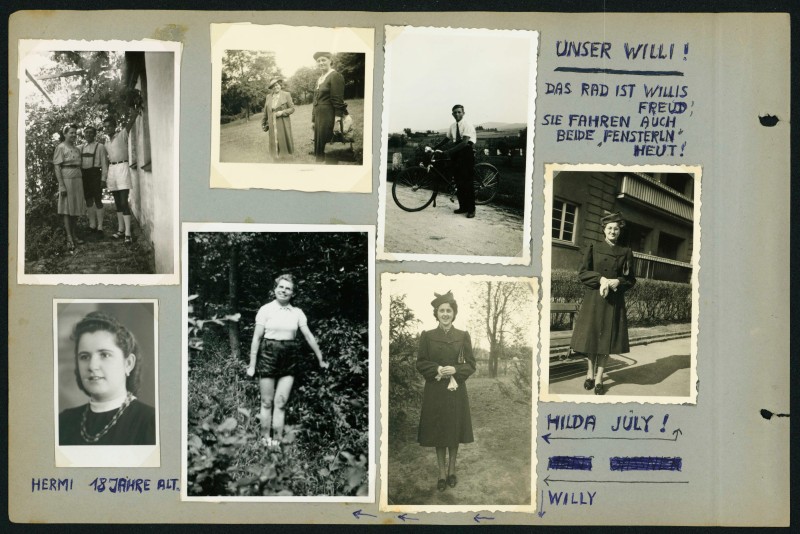 UNSER WILLI!
DAS RAD IST WILLIS
FREUD,
SIE FAHREN AUCH
BEIDE „FENSTERLN“
HEUT!
HILDA JÜLY!
WILLY
HERMI 18 JÄHRE ALT.